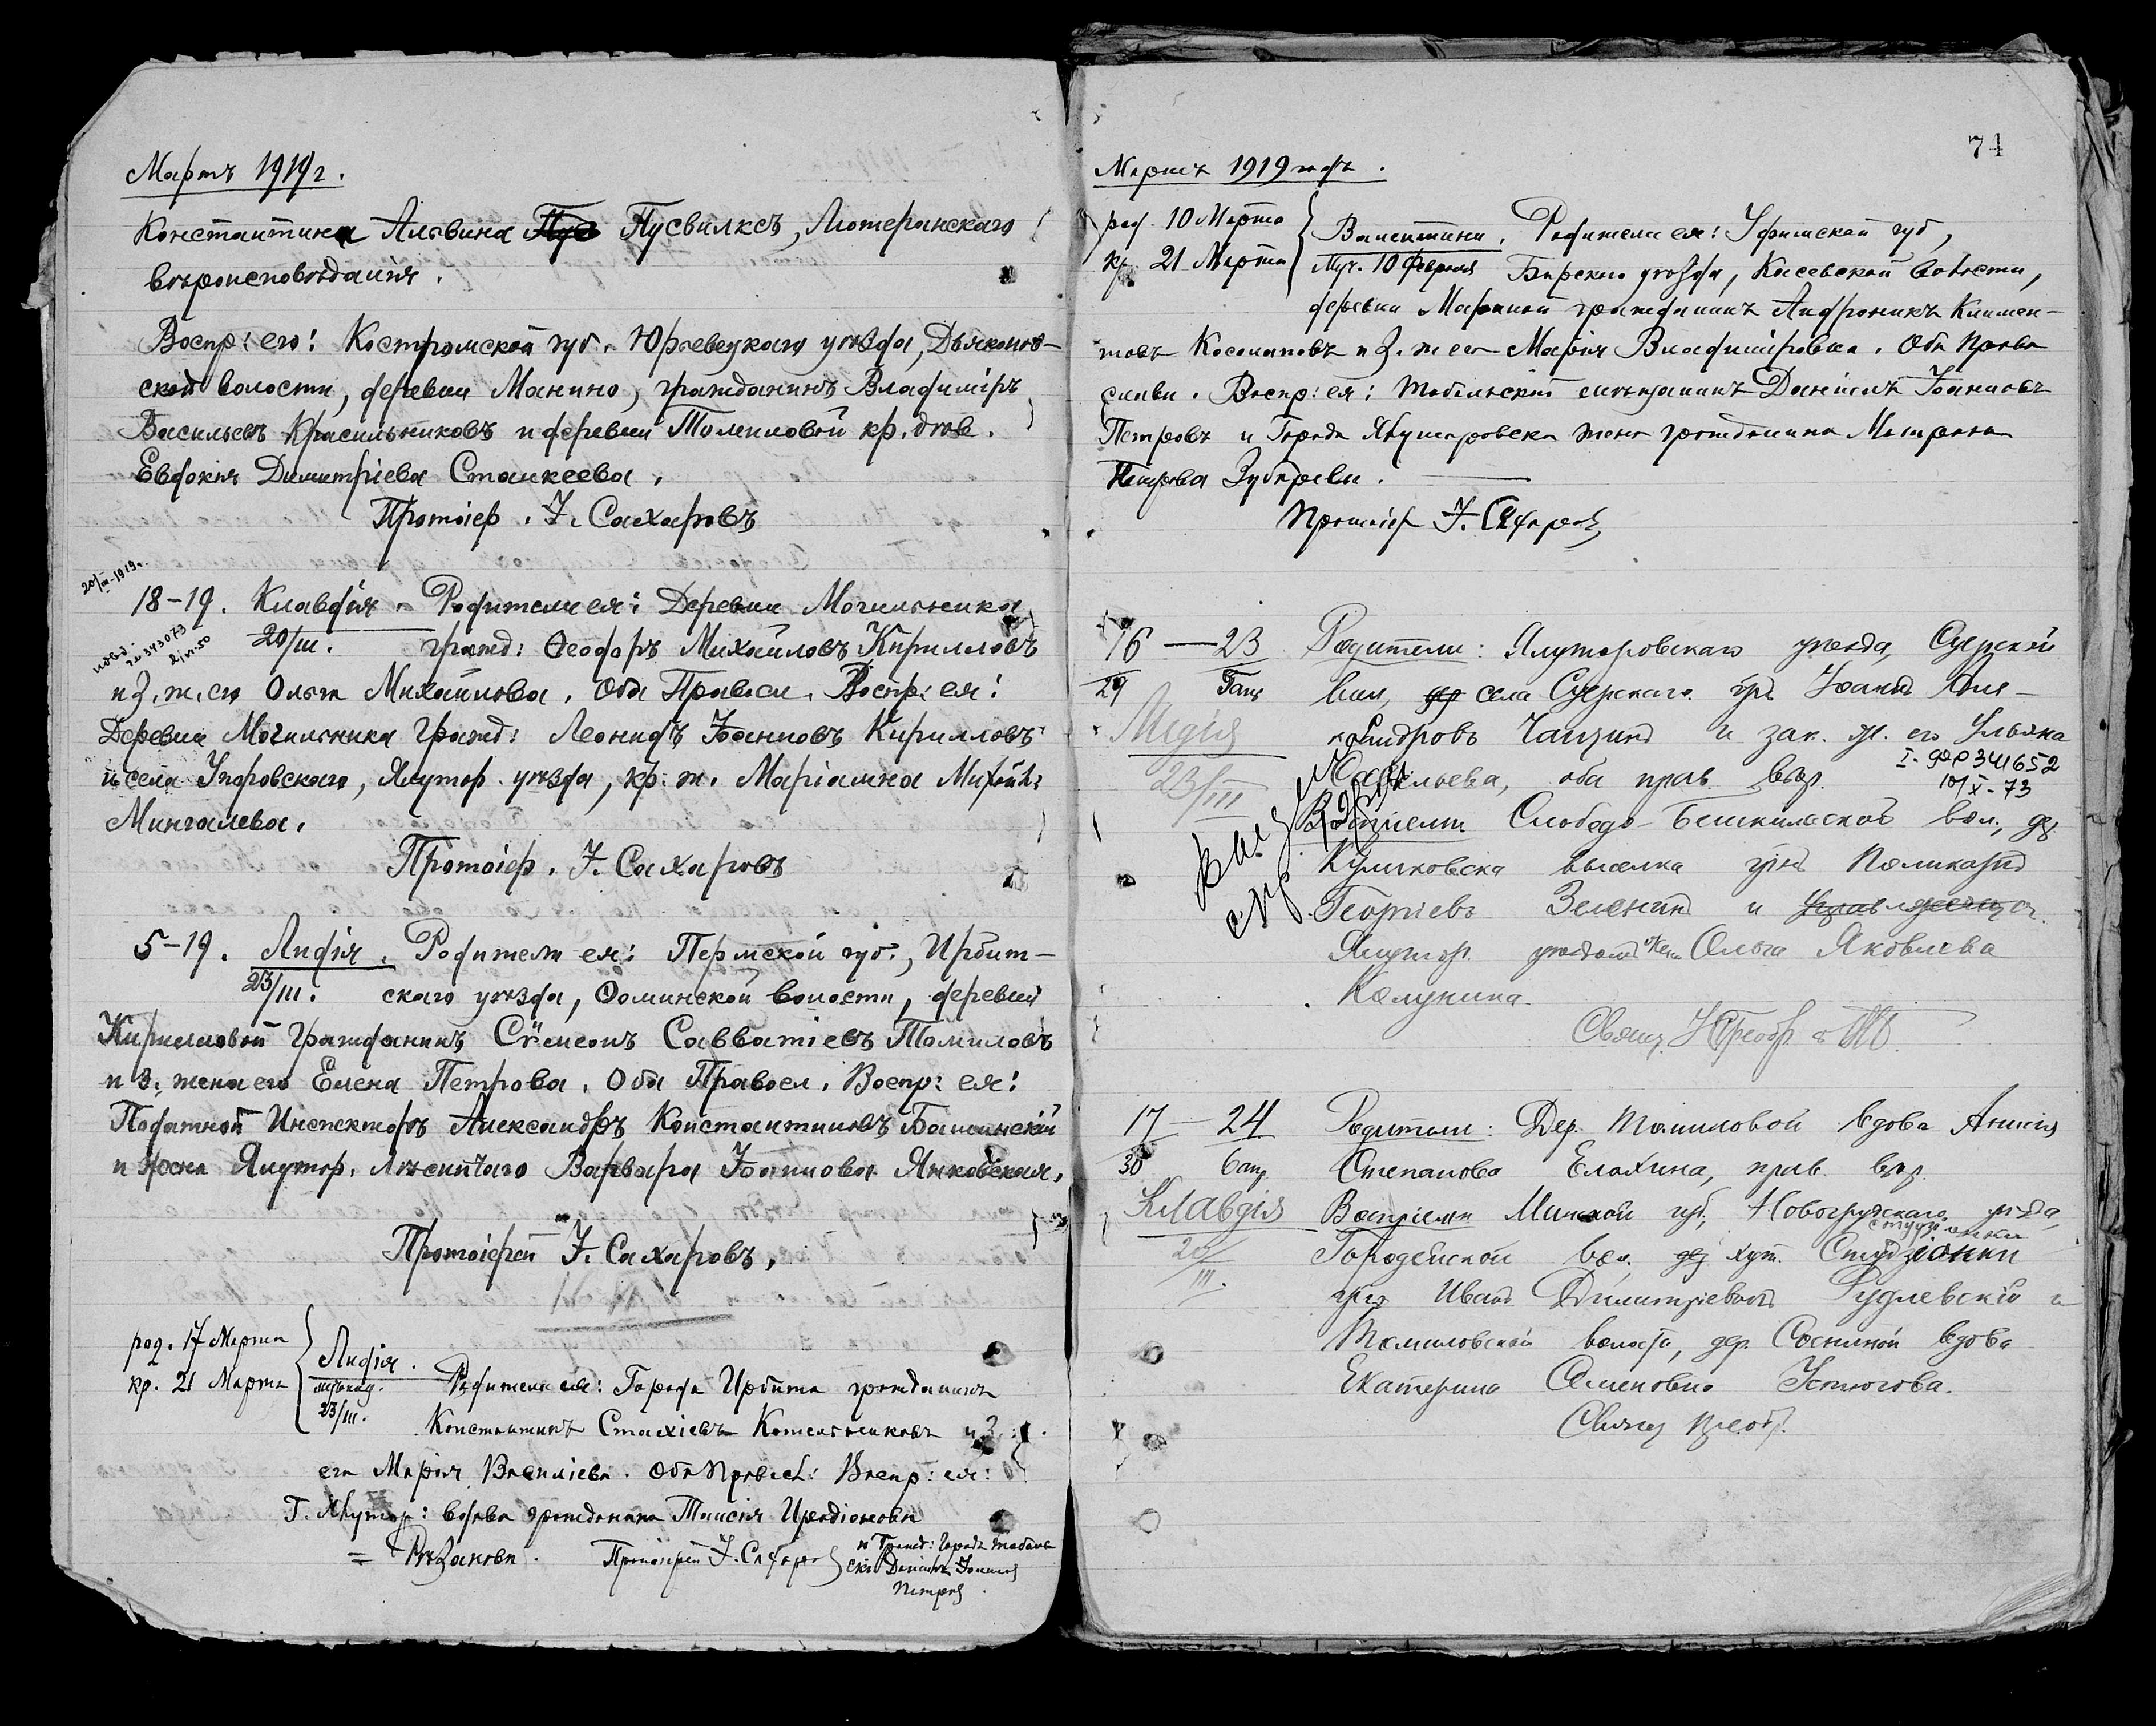 Мартъ 1919 г.
Константина Альвина Пусвилксъ, Лютеранскаго
вѣроисповѣданія.
Воспр: его: Костромской губ. Юрьевецкаго уѣзда, Дьяконов-
ской волости, деревни Манино, гражданинъ Владиміръ
Васильевъ Красильниковъ и деревни Томиловой кр. дѣв.
Евдокія Димитріева Станкеева.
Протоіер. І. Сахаровъ
20/III-1919 г.
18-19. Клавдія. Родители ея: Деревни Могильника
20/III. гражд: Ѳеодоръ Михайловъ Кирилловъ
и з. ж. его Ольга Михайлова. Оба Правосл. Воспр: ея:
Деревни Могильника Гражд: Леонидъ Іоанновъ Кирилловъ
и села Упоровскаго, Ялутор. уѣзда, кр: ж. Маріамна
Мингалева.
Протоіер. І. Сахаровъ
5-19. Лидія. Родители ея: Пермской губ., Ирбит-
23/III. скаго уѣзда, Ѳоминской волости, деревни
Кирилловой Гражданинъ Сѵмеонъ Савватіевъ Томиловъ
и з. жена его Елена Петрова. Оба Правосл. Воспр: ея:
Податной Инспекторъ Александръ Константиновъ
и жена Ялутор. Лѣсничаго Варвара Іоаннова Янковская.
Протоіерей І. Сахаровъ.
род. 17 Марта
кр. 21 Марта
Лидія.
23/III.
Родители ея: Города Ирбита гражданинъ
Константинъ Стахіевъ Котельниковъ и з. ж.
его Марія Василіева. Оба Правосл: Воспр: ея:
Г. Ялутор: вдова гражданина Таисія Иродіонова
Рѣзанова. Протоіерей І. Сахаровъ
и Гражд: Города Тоболь-
ска Даніилъ Іоанновъ
Петровъ.
74
Мартъ 1919 годъ.
род. 10 Марта
кр. 21 Марта
Валентина. Родители ея: Уфимской губ,
Муч. 10 Февраля Бирскаго уѣзда, Касевской волости,
деревни гражданинъ Андроникъ Климен-
товъ Косолаповъ и з. ж его Марія Владиміровна. Оба Право
славн. Воспр: ея: Тобольскій мѣщанинъ Даніилъ Іоанновъ
Петровъ и Города Ялуторовска жена гражданина Матрона
Петрова Зубарева.
Протоіер І. Сахаровъ
16 — 23 Родители: Ялуторовскаго уѣзда, Суерской
29 вол, села Суерскаго гр. Іоаннъ Але-
Лидія ксандровъ и зак. ж. его Ульяна
23/III Васильева, оба прав. вѣр.
341652
10/X-73
Воспріемн. Слободо-Бешкильской вол., дер
Куликовска выселка гр. Поликарпъ
Георгіевъ Зеленинъ и
Ялутор. Ольга Яковлева
Калунина.
17 — 24 Родители: Дер. Томиловой вдова Анисія
30 Степанова Елохина, прав. вѣр.
Клавдія Воспріемн Минской губ, Новогрудскаго уѣзда,
20/III. Городейской вол. хут. Студзіонки
гр. Иванъ Димитріевъ Рудлевскій и
Томиловской волости, дер. Сосниной вдова
Екатерина Семеновна Устюгова.